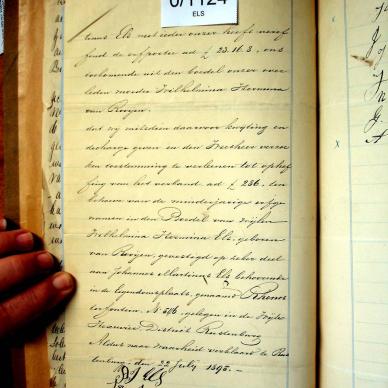 6/1124
ELS
tiaans Els met ieder onzer heeft
fend de erfportie ad £ 23.16.3, ons
toekomende uit den boedel onzer over
leden moeder Wilhelmina Hermina
van Rooijen.
dat wij mitsdien daarvoor kwijting en
decharge geven en den Freeheer
den toestemming te verleenen tot ophef
fing van het verband ad £ 236, ten
behoeve van de minderjarige erfge
namen in den Boedel van Wijlen
Wilhelmina Hermina Els, geboren
van Rooijen, gevestigd op zeker deel
aan Johannes Martinus Els behoorende
in de eigendomsplaats, genaamd Rhenos
terfontein, No 506 gelegen in de Wijk
District Rustenburg
Aldus naar waarheid verklaard te Rus
tenburg, den 22 July 1895.-